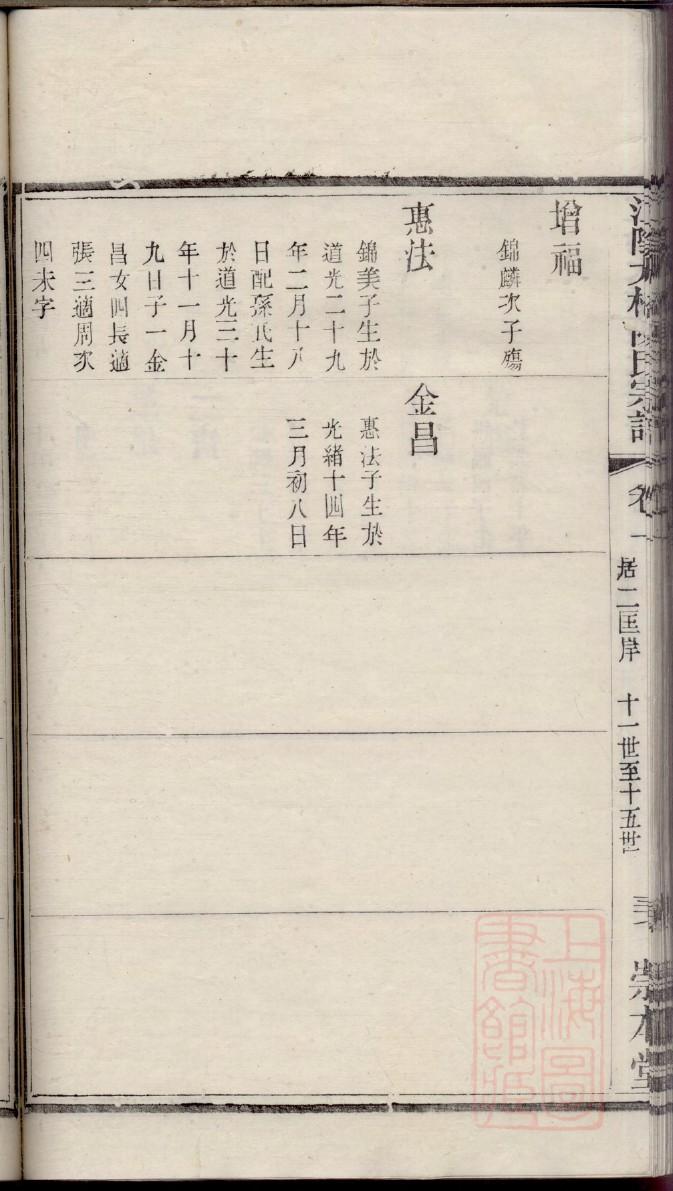 增福
錦麟次子殤
惠法
錦美子生於
道光二十九
年二月十八
日配孫氏生
於道光三十
年十一月十
九日子一金
昌女四長適
張三適周次
四未字
金昌
惠法子生於
光緒十四年
三月初八日
江陰 氏宗譜
卷一
居二匡岸 十一世至十五世
崇本堂
上海圖
書館藏